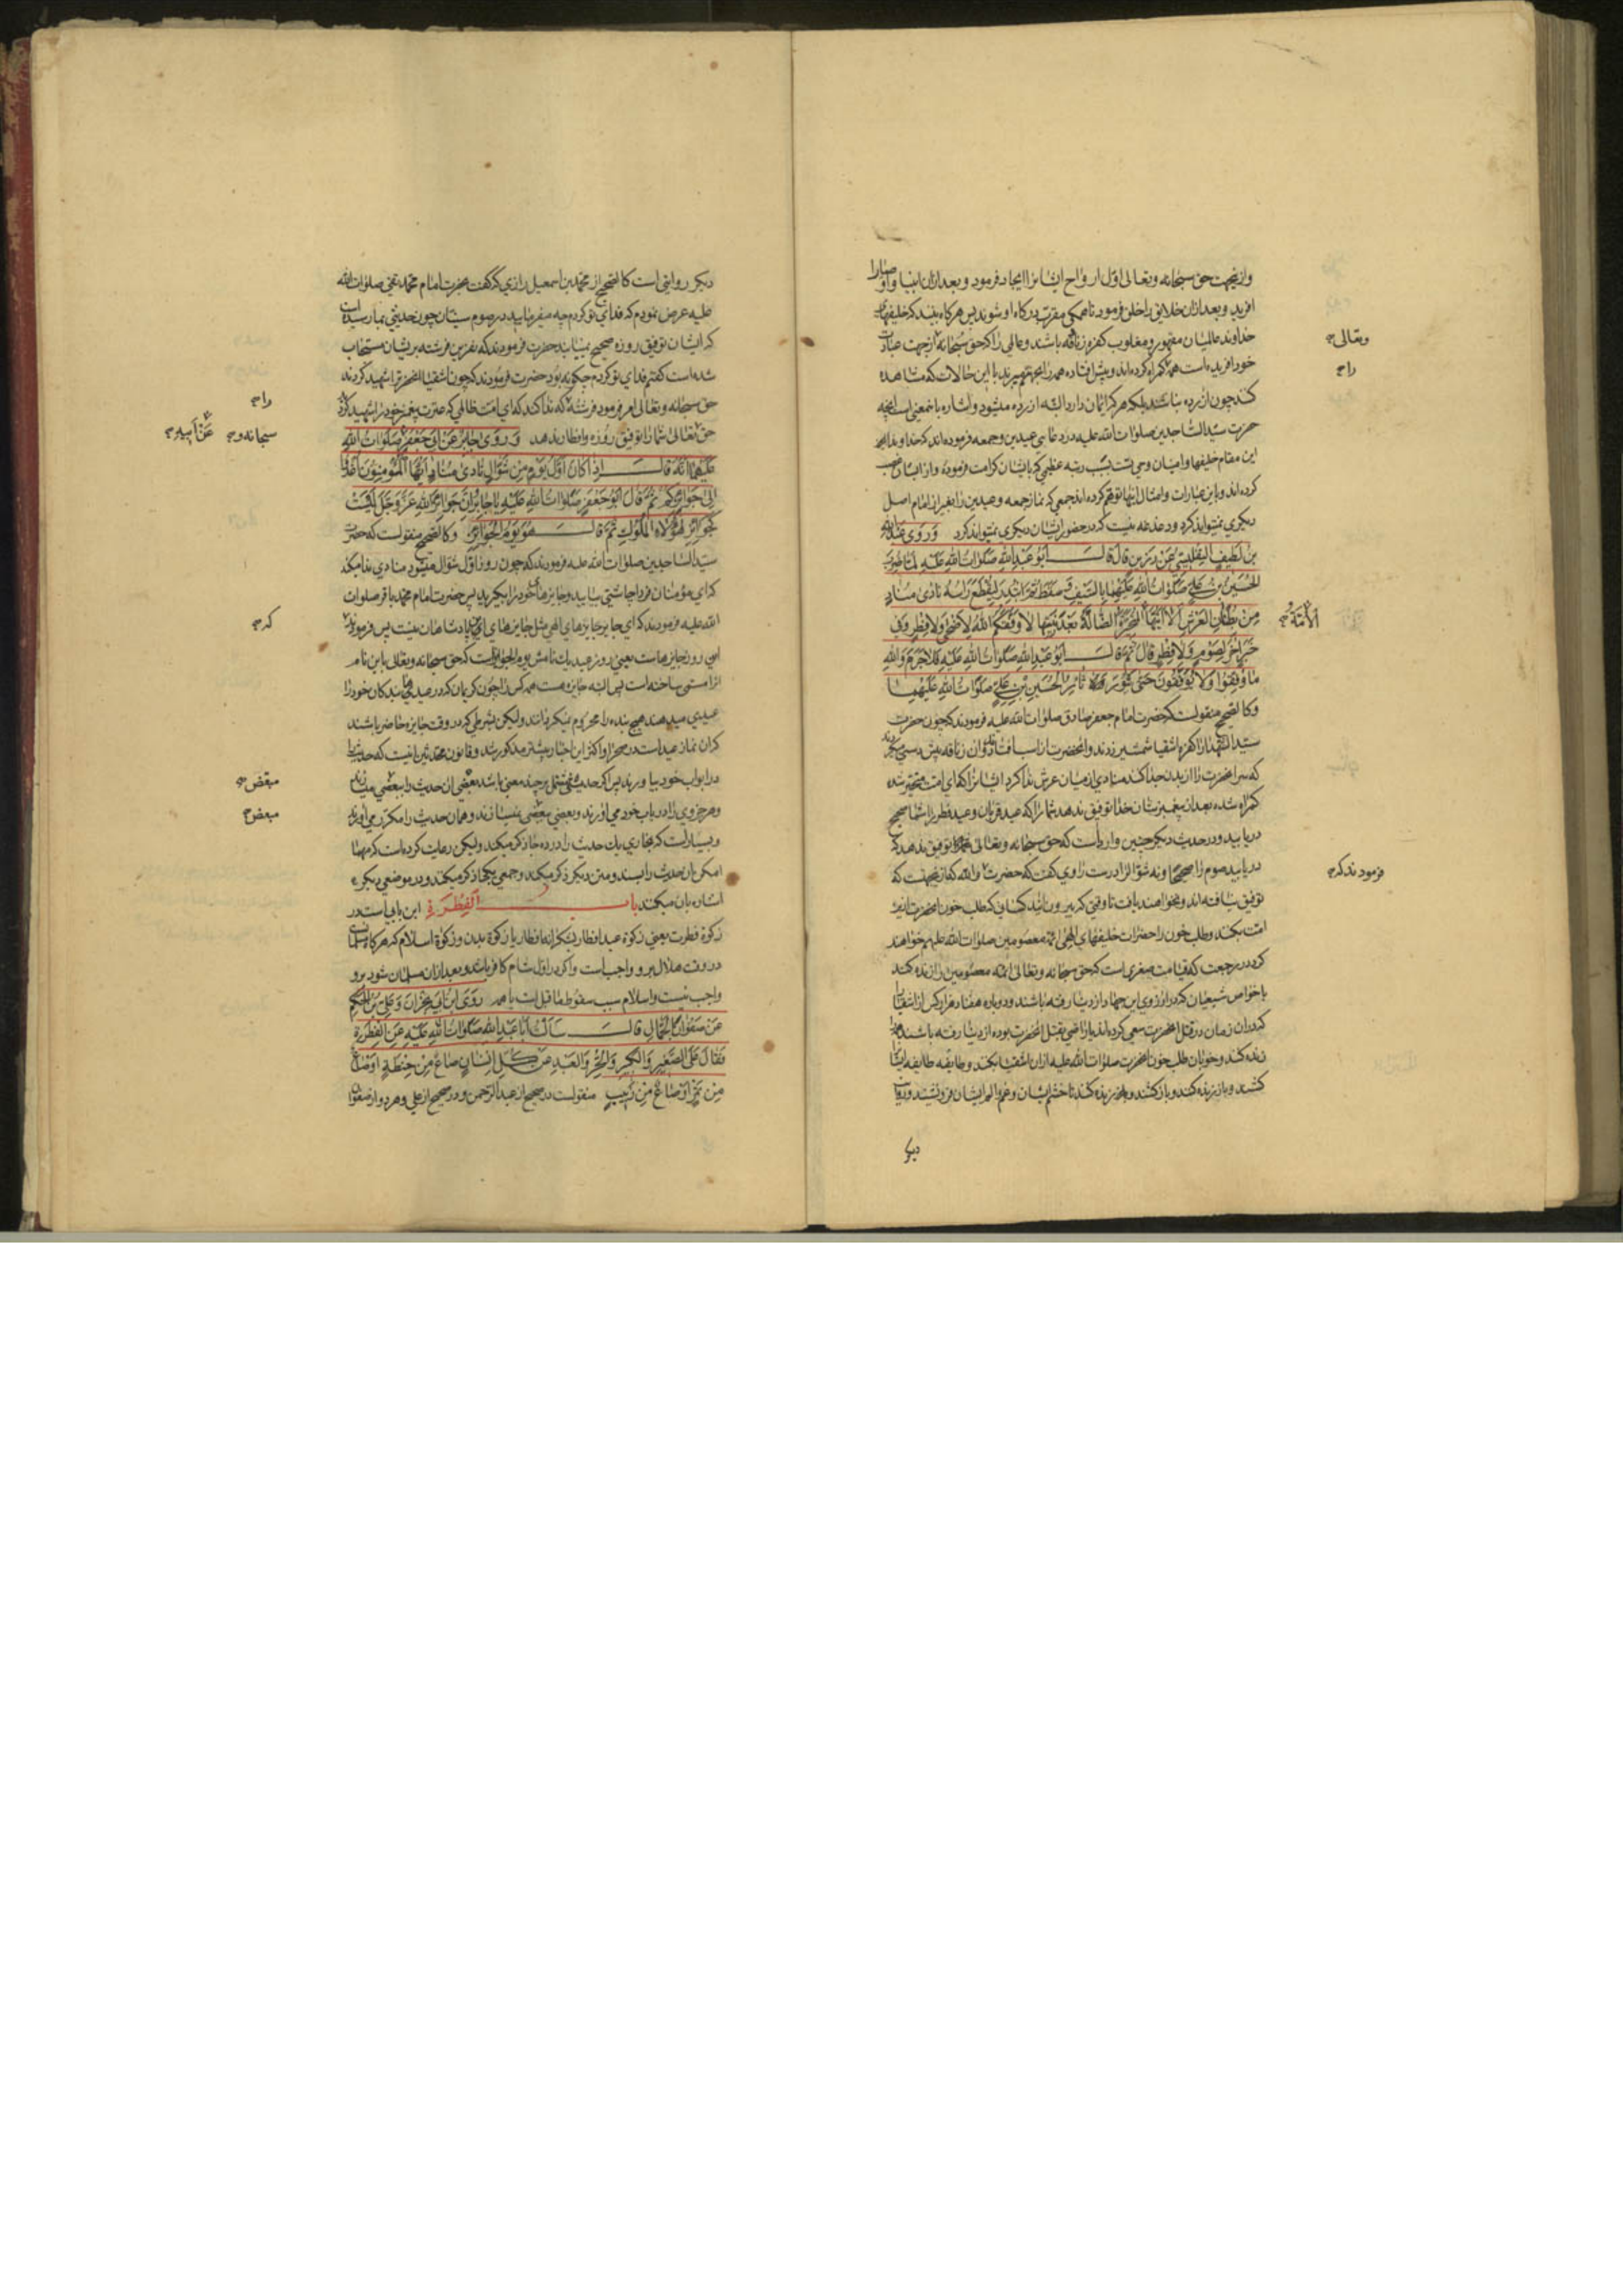 وازینجهت حق سبحانه وتعالی اول ارواح ایشانرا ایجاد فرمود وبعد ازان انبیا واوصیا را
افرید وبعد ازان خلایق را خلق فرمود تا همکی مقرب درکاه او شوند پس هرکاه بینند که خلیفهای
خداوند عالمیان مقهور ومغلوب کفره زنادقه باشند وعالمی را که حق سبحانه ازجهت عبادت
وتعالی
خود افریده است همه کمراه کرده اند با این حالات که مشاهده
را
کنند چون ازرده نباشند بلکه هرکه ایمان دارد البته ازرده میشود واشاره باینمعنی است انچه
حضرت سید الساجدین صلوات الله علیه در دعای عیدین وجمعه فرموده اند که خداوندا
این مقام خلیفها وامینان وحی تست بسبب رتبه عظمی که بایشان کرامت فرموده واز ایشان غصب
کرده اند وباین عبارات وامثال اینها توهم کرده اند جمعی که نماز جمعه وعیدین را بغیر از امام اصل
دیکری نمیتواند کرد ودغدغه نیست که در حضور ایشان دیکری نمیتواند کرد وروی عبد الله
بن لطیف التفلیسی عن رزین قال قال ابو عبد الله صلوات الله علیه لما ضرب
الحسین بن علی صلوات الله علیهما بالسیف وسقط ثم ابتدر لیقطع راسه نادی مناد
من بطنان العرش الا ایتها المتحیره الضالة بعد نبیها لا وفقکم الله لاضحی ولا فطر وفی
الامة
خبر اخر لصوم ولا فطر قال ثم قال ابو عبد الله صلوات الله علیه فلا جرم والله
ما وفقوا ولا یوفقون حتی یثور ثائر الحسین بن علی صلوات الله علیهما
وکالصحیح منقولست که حضرت امام جعفر صادق صلوات الله علیه فرمودند که چون حضرت
سید الشهدا را کفره اشقیا شمشیر زدند وانحضرت از اسب افتاد وان زنادقه پیش دستی میکردند
که سر انحضرت را از بدن جدا کنند منادی از میان عرش ندا کرد ایشانرا که ای امت متحیر شده
کمراه شده بعد از پیغمبرتان خدا توفیق ندهد شما را که عید قربان وعید فطر را شما صحیح
دریابید ودر حدیث دیکر چنین وارد است که حق سبحانه وتعالی شما را توفیق ندهد که
دریابید صوم را صحیحا ونه شوال را درست راوی کفت که حضرت والله که ازینجهت که
فرمودند که
توفیق نیافته اند ونخواهند یافت تا وقتی که بیرون ایند کسانی که طلب خون انحضرت ازین
امت بکنند وطلب خون را حضرات خلیفهای الهی ائمه معصومین صلوات الله علیهم خواهند
کرد در رجعت که قیامت صغری است که حق سبحانه وتعالی ائمه معصومین را زنده کند
با خواص شیعیان که در ارزوی این جهاد از دنیا رفته باشند ودوباره هفتاد هزار کس از اشقیا را
که دران زمان در قتل انحضرت سعی کرده اند یا راضی بقتل انحضرت بوده از دنیا رفته باشند
زنده کند وخوبان طلب خون انحضرت صلوات الله علیه ازان اشقیا بکنند وطایفه طایفه ایشانرا
کشند وباز زنده کنند وباز کشند وباز زنده کنند تا خشم ایشان وغم والم ایشان فرو نشیند
دیکر روایتی است کالصحیح از محمد بن اسمعیل رازی که کفت بحضرت امام محمد تقی صلوات الله
علیه عرض نمودم که فدای تو کردم چه میفرمایید در صوم سنیان چون حدیثی بما رسیده است
که ایشان توفیق روزه صحیح نمییابند حضرت فرمودند که نفرین فرشته بر ایشان مستجاب
شده است کفتم فدای تو کردم چکونه بود حضرت فرمودند که چون اشقیا انحضرترا شهید کردند
حق سبحانه وتعالی امر فرمود فرشته که ندا کند که ای امت ظالمی که عترت پیغمبر خود را شهید کردند
را
حق تعالی شما را توفیق روزه وافطار ندهد وروی جابر عن ابی جعفر صلوات الله
سبحانه و
عن ابیه
علیهما انه قال اذا کان اول یوم من شوال نادی مناد ایها المؤمنون اغدوا
الی جوایزکم ثم قال ابو جعفر صلوات الله علیه یا جابر ان جوایز الله عز وجل لیست
کجوایز هؤلاء الملوک ثم قال هو یوم الجوایز وکالصحیح منقولست که حضرت
سید الساجدین صلوات الله علیه فرمودند که چون روز اول شوال میشود منادی ندا میکند
که ای مؤمنان فردا چاشتی بیایید وجایزهای خود را بیکرید پس حضرت امام محمد باقر صلوات
الله علیه فرمودند که ای جابر جایزهای الهی مثل جایزهای این پادشاهان نیست پس فرمودند
که
این روز جایزهاست یعنی روز عید یک نامش یوم الجوایز است که حق سبحانه وتعالی باین نام
انرا مسمی ساخته است پس البته جایزه هست همه کس را چون کریمان که در عیدی بندکان خود را
عیدی میدهند هیچ بنده را محروم نمیکردانند ولیکن بشرطی که در وقت جایزه حاضر باشند
که ان نماز عید است در صحرا واکثر این اخبار پیشتر مذکور شد وقانون محدثین اینست که حدیث را
در ابواب خود بیاورند پس اکر حدیثی مشتمل بر چند معنی باشد بعضی ان حدیث را ببعضی
مبعض
وهر جزوی را در باب خود می اورند وبعضی مبعض نمیسازند وهمان حدیث را مکرر می اورند
مبعض
وبسیار است که بخاری یک حدیث را در ده جا ذکر میکند ولیکن رعایت کرده است که مهما
امکن ان حدیث را بسند ومتن دیکر ذکر میکند وجمعی یکجا ذکر میکنند ودر موضعی دیکر
اشاره بان میکنند باب الفطرة این بابی است در
زکوة فطرت یعنی زکوة عید افطار بشکرانه افطار یا زکوة بدن وزکوة اسلام که هرکاه مسلمان
در وقت هلال برو واجب است واکر در اول شام کافر باشد وبعد ازان مسلمان شود برو
واجب نیست واسلام سبب سقوط ما قبل است روی ابن ابی نجران وعلی بن الحکم
عن صفوان الجمال قال سالت ابا عبد الله صلوات الله علیه عن الفطرة
فقال علی الصغیر والکبیر والحر والعبد عن کل انسان صاع من حنطة او صاع
من تمر او صاع من زبیب منقولست در صحیح از عبد الرحمن ودر صحیح از علی وهر دو از صفوان